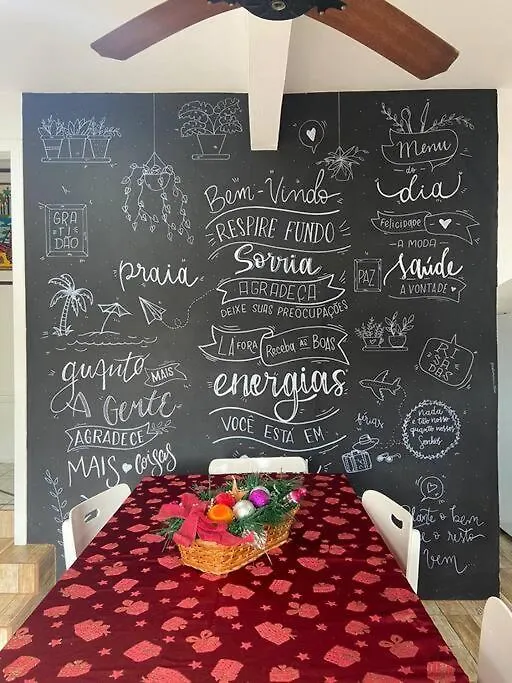 GRA
TI
DÃO
praia
quanto
MAIS
A Gente
AGRADECE
MAIS coisas
Bem-Vindo
RESPIRE FUNDO
Sorria
AGRADEÇA
DEIXE SUAS PREOCUPAÇÕES
LÁ FORA
Receba AS BOAS
energias
VOCÊ ESTÁ EM
Menu
do
dia
Felicidade
A MODA
PAZ
saúde
À VONTADE
RI
SA
DAS
férias
nada
é tão nosso
quanto nossos
Sonhos
Plante o bem
e o resto
vem